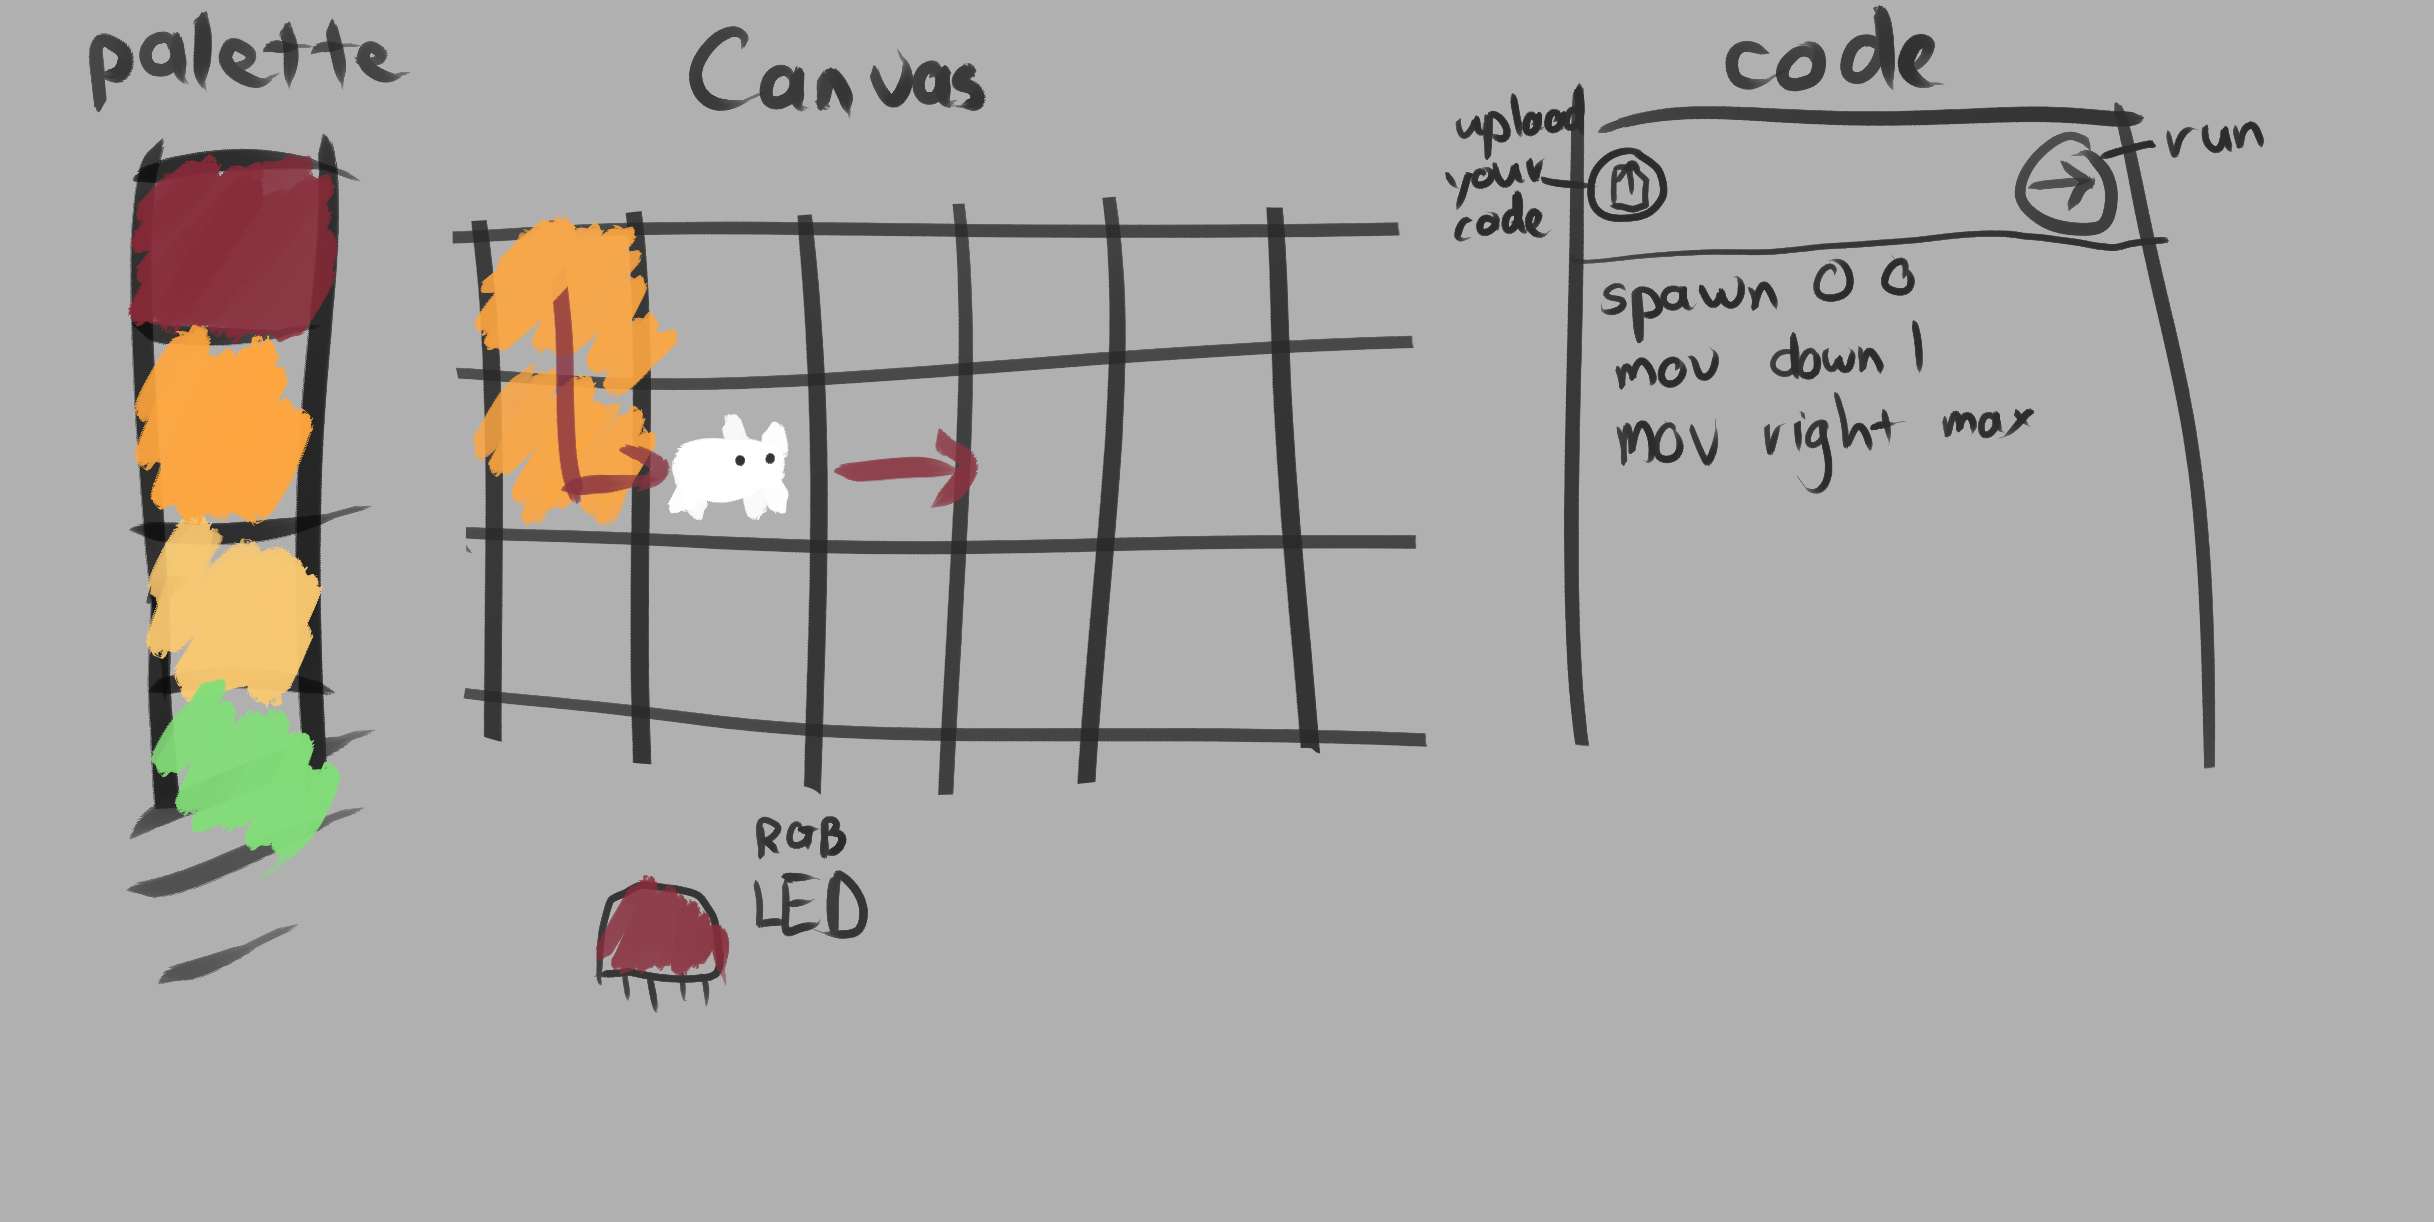 palette
Canvas
code
upload
your
code
run
spawn 0 0
mov down 1
mov right max
RGB
LED